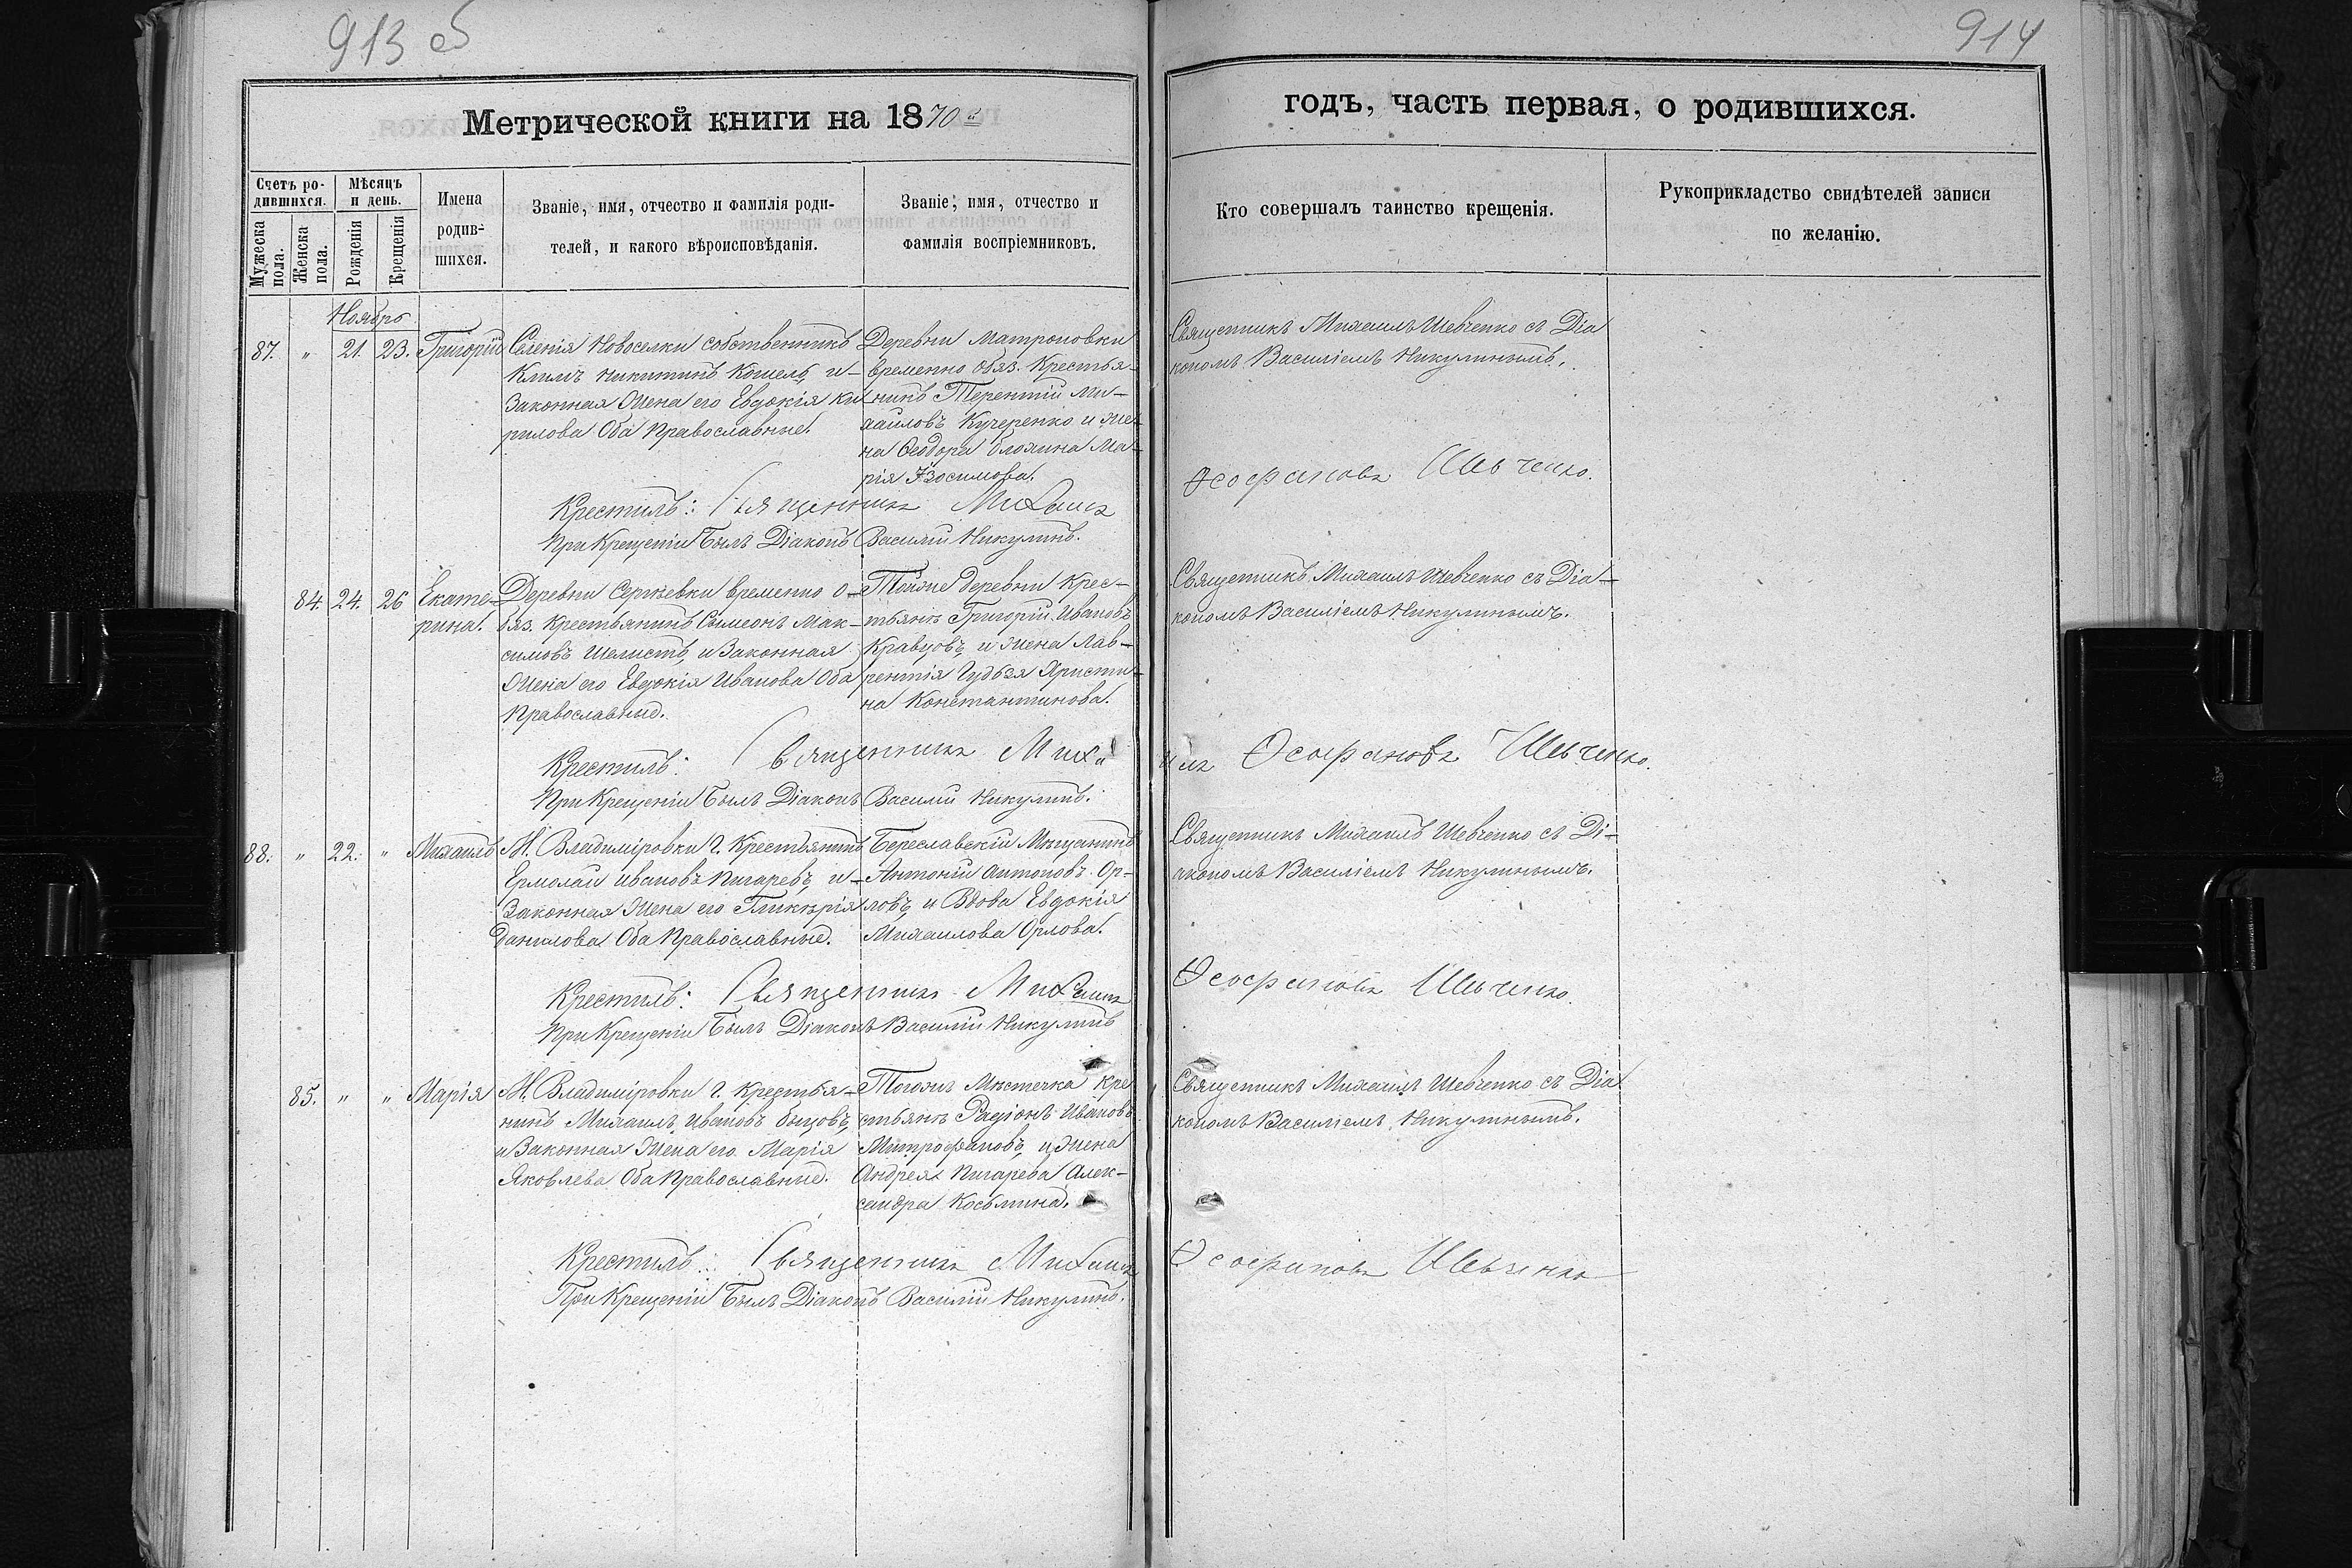 913 об
914
Метрической книги на 1870 й
годъ, часть первая, о родившихся.
Счетъ ро-
дившихся.
Мужеска пола.
Женска пола.
Мѣсяцъ
и день.
Рожденія
Крещенія
Имена
родив-
шихся.
Званіе, имя, отчество и фамилія роди-
телей, и какого вѣроисповѣданія.
Званіе, имя, отчество и
фамилія воспріемниковъ.
Кто совершалъ таинство крещенія.
Рукоприкладство свидѣтелей записи
по желанію.
Ноябрь
87. " 21. 23. Григорій
Селенія Новоселки собственникъ
Климъ Никитинъ Кошель, и
Законная Жена его Евдокія Ки
рилова Оба Православные.
Деревни Матроновки
временно обяз. Крестья-
нинъ Терентій Ми-
хаиловъ Кучеренко и же
на Ѳеодора Марія
Зосимова.
Священникъ Михаилъ Шевченко съ Діа
кономъ Василіемъ Никулинымъ.
Крестилъ: Священникъ Михаилъ Ѳеофановъ Шевченко.
При Крещеніи Былъ Діаконъ Василій Никулинъ.
84. 24. 26 Екате-
рина.
Деревни Сергѣевки временно о-
бяз. Крестьянинъ Сѵмеонъ Мак-
симовъ Шелистъ, и Законная
Жена его Евдокія Иванова Оба
Православные.
Тойже деревни Крес-
тьянъ Григорій Ивановъ
Кравцовъ, и жена Лав-
рентія Христи-
на Константинова.
Священникъ Михаилъ Шевченко съ Діа-
кономъ Василіемъ Никулинымъ.
Крестилъ: Священникъ Михаилъ Ѳеофановъ Шевченко.
При Крещеніи Былъ Діаконъ Василій Никулинъ.
88. " 22. " Михаилъ
М. Владиміровки г. Крестьянинъ
Ермолай Ивановъ Пигаревъ, и
Законная Жена его Гликерія
Данилова Оба Православные.
Береславскій Мѣщанинъ
Антоній Антоновъ Ор-
ловъ, и Вдова Евдокія
Михаилова Орлова.
Священникъ Михаилъ Шевченко съ Ді-
акономъ Василіемъ Никулинымъ.
Крестилъ: Священникъ Михаилъ Ѳеофановъ Шевченко.
При Крещеніи Былъ Діаконъ Василій Никулинъ
85. " " Марія
М. Владиміровки г. Крестья-
нинъ Михаилъ Ивановъ
и Законная Жена его Марія
Яковлева Оба Православные.
Тогожъ Мѣстечка Кре
стьянъ Радіонъ Ивановъ
Митрофановъ, и Жена
Андрея Пигарева Алек-
сандра Косьмина.
Священникъ Михаилъ Шевченко съ Діа
кономъ Василіемъ Никулинымъ.
Крестилъ: Священникъ Михаилъ Ѳеофановъ Шевченко
При Крещеніи Былъ Діаконъ Василій Никулинъ.